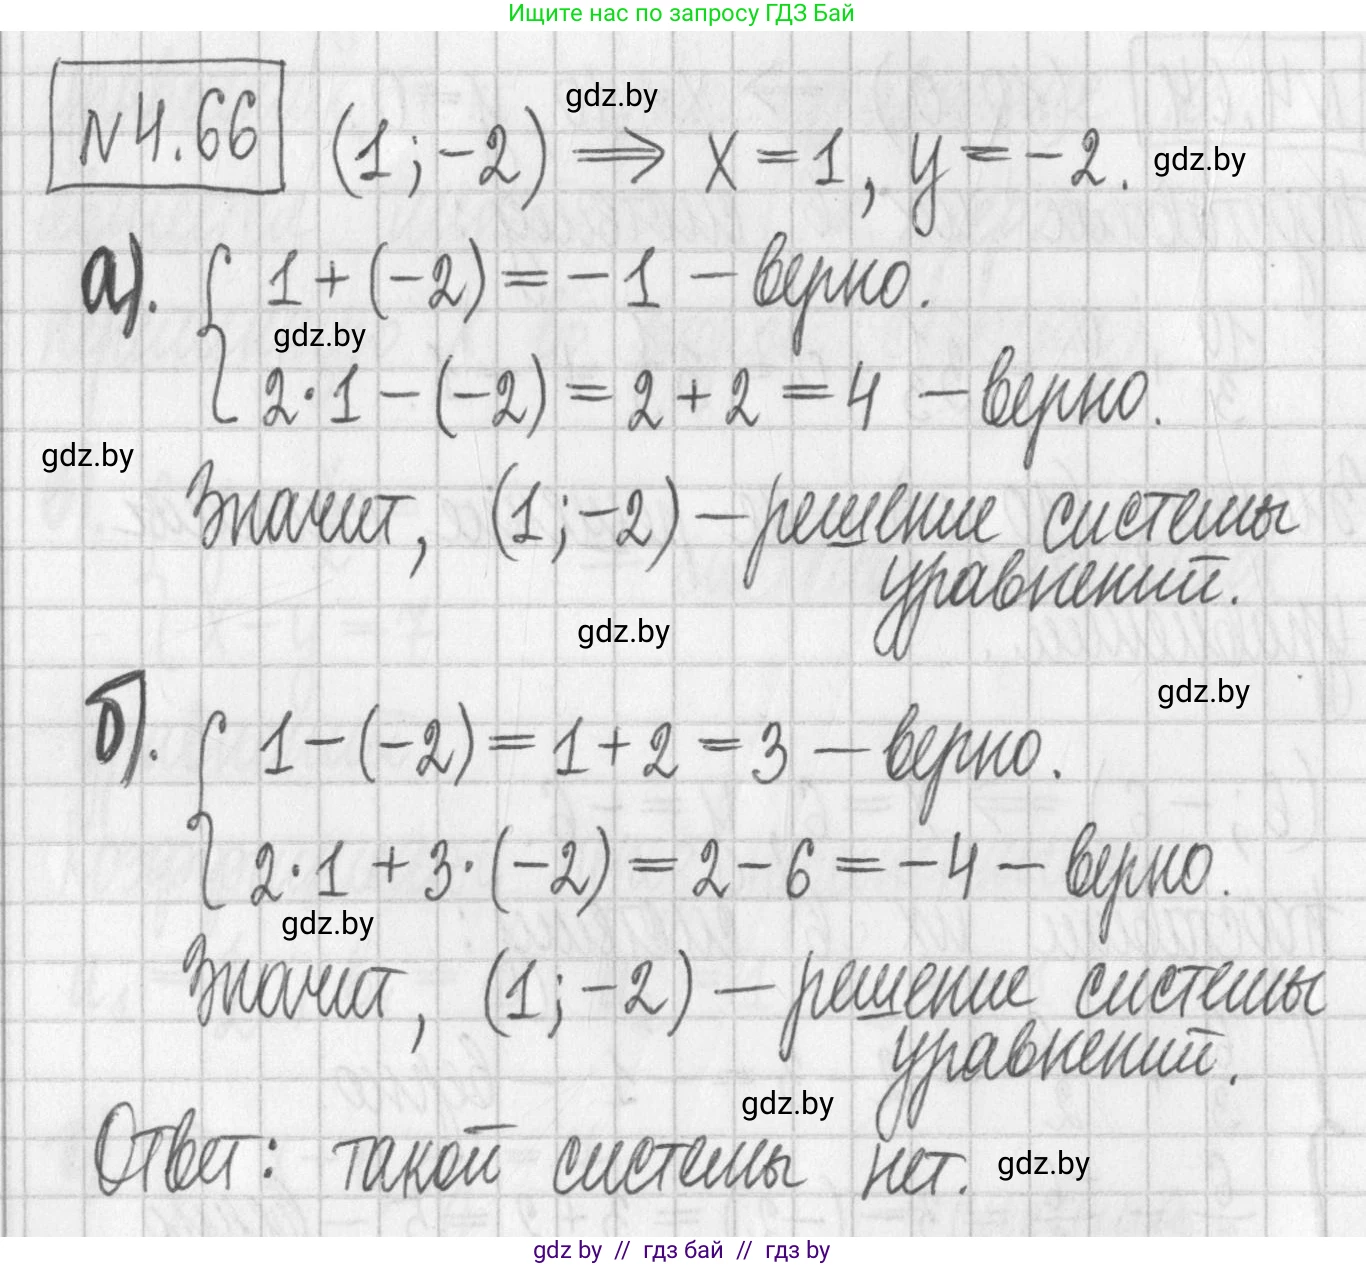 Ищите нас по запросу ГДЗ Бай
gdz.by
№4.66 (1; -2) ⟹ x = 1, y = -2. gdz.by
а). { 1 + (-2) = -1 - верно.
gdz.by
2·1 - (-2) = 2 + 2 = 4 - верно.
gdz.by
Значит, (1; -2) - решение системы
уравнений.
gdz.by
gdz.by
б). { 1 - (-2) = 1 + 2 = 3 - верно.
2·1 + 3·(-2) = 2 - 6 = -4 - верно.
gdz.by
Значит, (1; -2) - решение системы
уравнений.
gdz.by
Ответ: такой системы нет. gdz.by
gdz by // гдз бай // гдз by